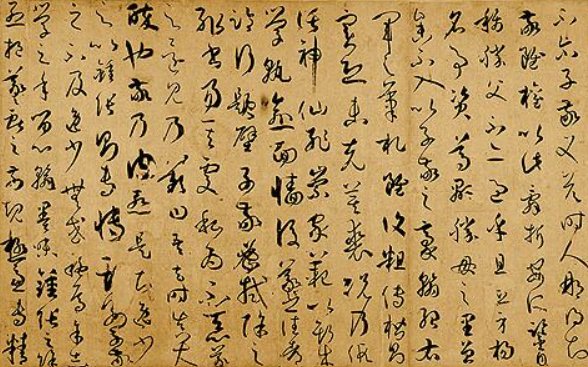 不然子敬又答時人那得知
敬雖權以此辭折安所鑒自
稱勝父不亦過乎且立身揚
名事資尊顯勝母之里曾
參不入以子敬之豪翰紹右
軍之筆札雖復粗傳楷則
實恐未克箕裘況乃假
託神仙恥崇家範以斯成
學孰愈面牆後羲之往都
臨行題壁子敬密拭除之
輒書易其處私為不惡羲
之還見乃歎曰吾去時真大
醉也敬乃內慚是知逸少
之比鍾張則專博斯別子敬
之不及逸少無或疑焉余志
學之年留心翰墨味鍾張之餘
烈挹羲獻之前規極慮專精